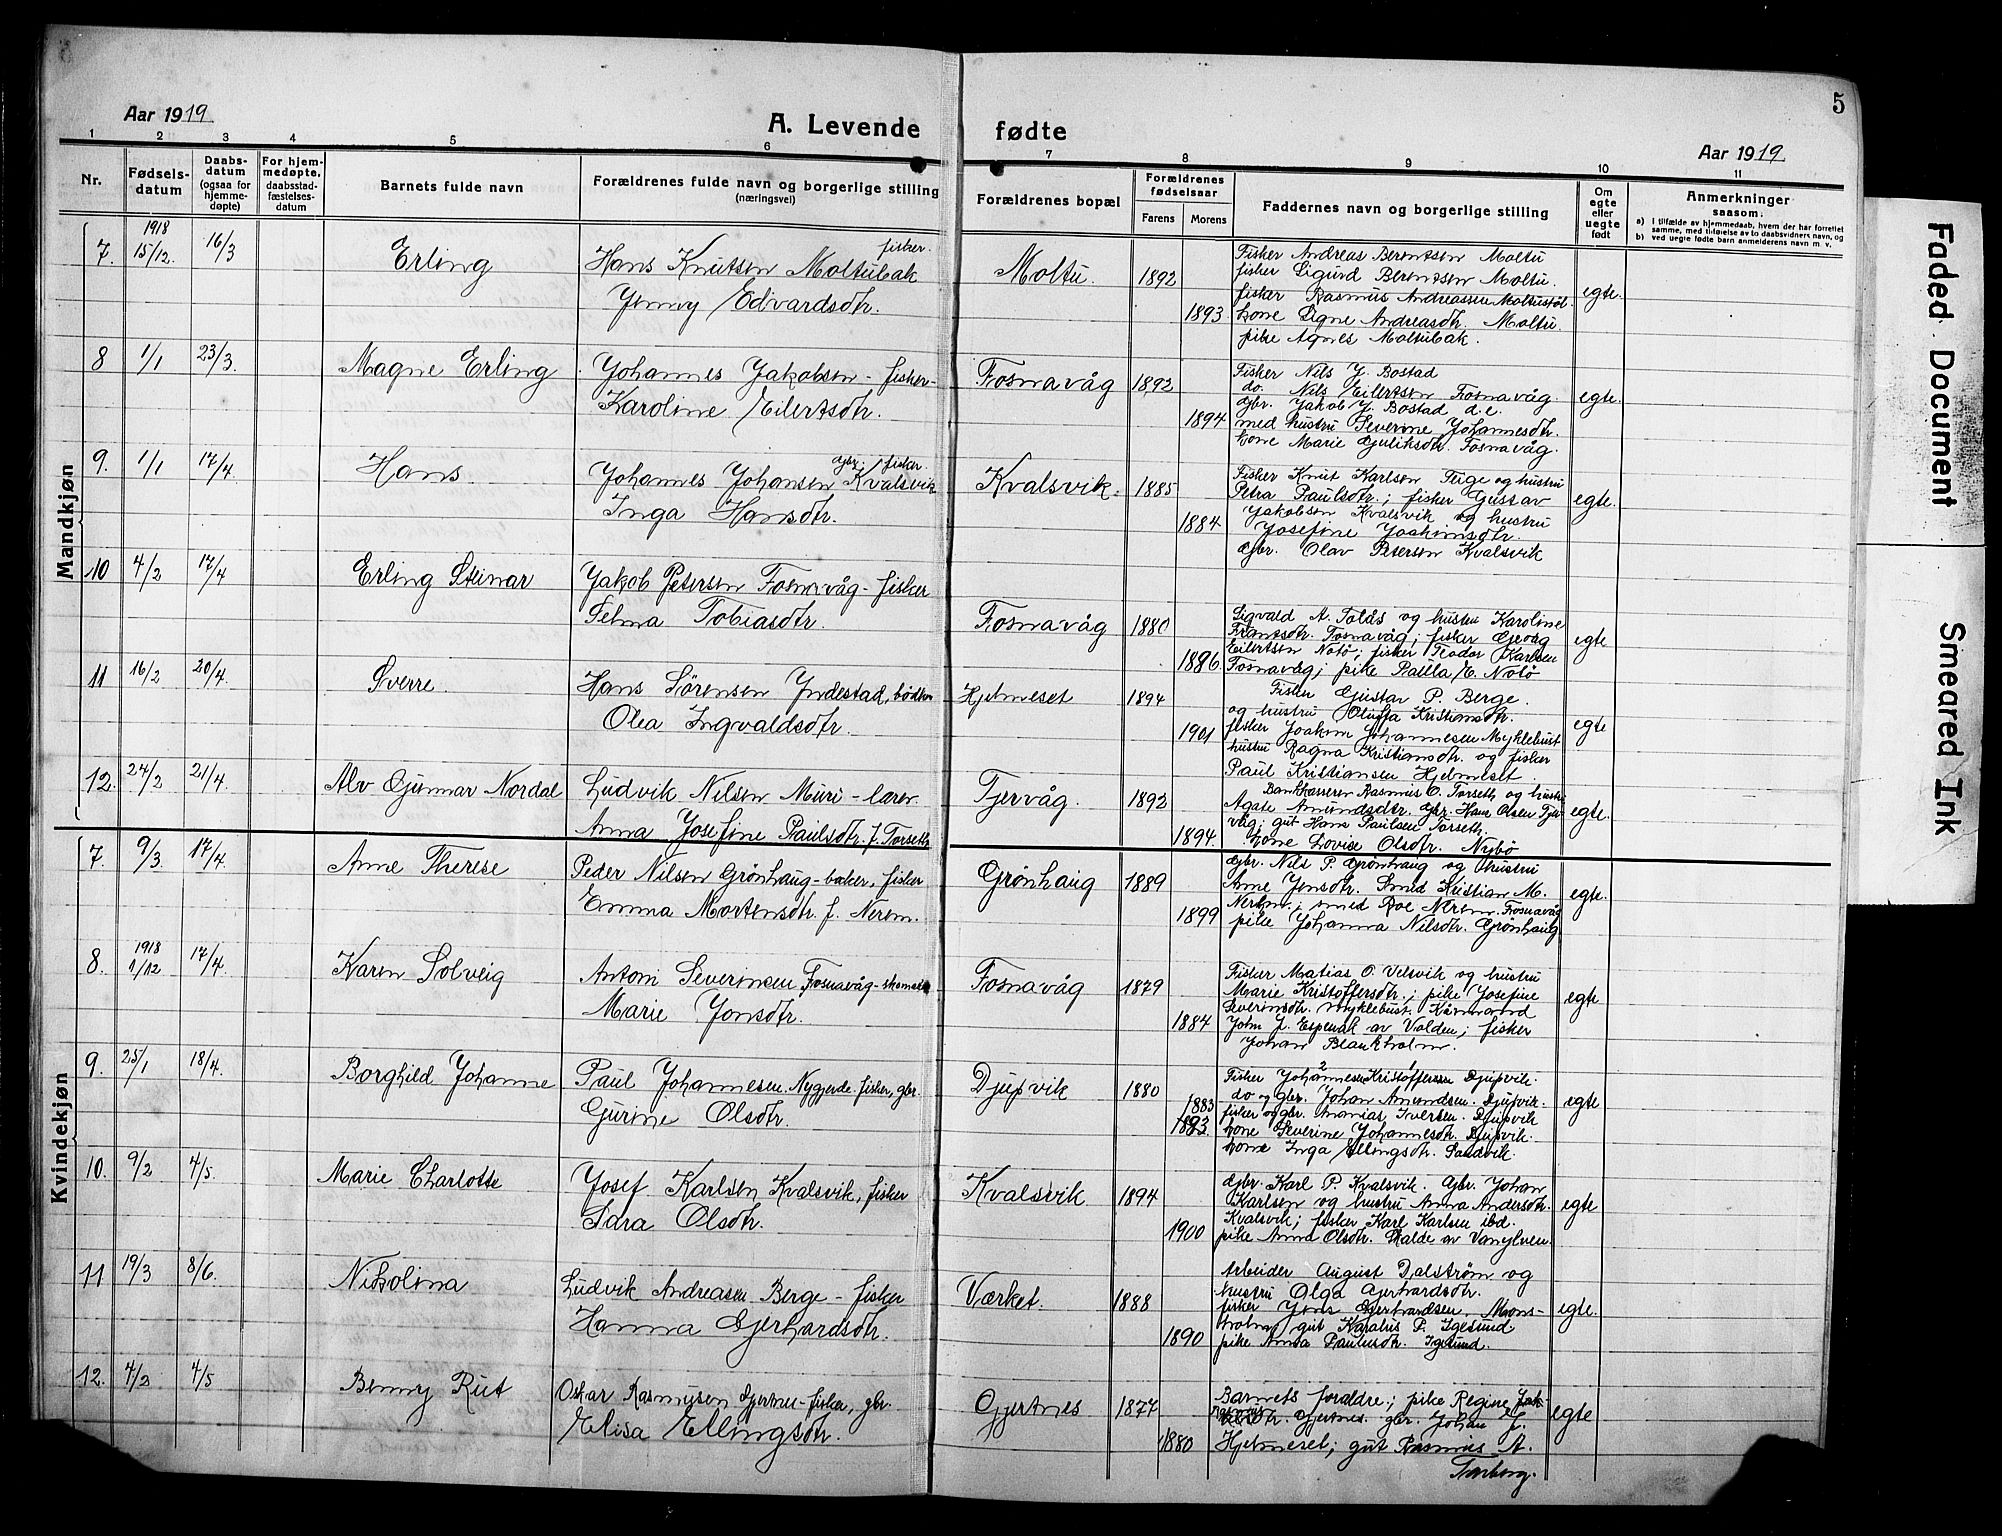 5
Aar 1919
A. Levende fødte
Aar 1919
1 2 3 4 5 6 7 8 9 10 11
Nr.
Fødsels-
datum
Daabs-
datum
(ogsaa for
hjemme-
døpte)
For hjem-
medøpte,
daabsstad-
fæstelses-
datum
Barnets fulde navn
Forældrenes fulde navn og borgerlige stilling
(næringsvei)
Forældrenes bopæl
Forældrenes
fødselsaar
Farens Morens
Faddernes navn og borgerlige stilling
Om
egte
eller
uegte
født
Anmerkninger
saasom:
a) I tilfælde av hjemmedaab, hvem der har forrettet
samme, med tilføielse av to daabsvidners navn, og
b) ved uegte fødte barn anmelderens navn m. v.
Mandkjøn
7. 1918 15/12. 16/3 Erling
Hans Knutsen Moltubak fisker.
Jenny Edvardsdtr.
Moltu. 1892 1893
Fisker Andreas Berentsen Moltu
fisker Sigurd Berentsen Moltu.
fisker Rasmus Andreassen Moltustøl.
kone Signe Andreasdtr. Moltu
pike Agnes Moltubak.
egte.
8 1/1 23/3. Magne Erling
Johannes Jakobsen - fisker-
Karoline Eilertsdtr.
Fosnavåg 1892 1894
Fisker Nils J. Bostad
do. Nils Eilertsen Fosnavåg.
gbr. Jakob J. Bostad d.e.
med hustru Severine Johannesdtr.
kone Marie Gjuliksdtr. Fosnavåg.
egte.
9. 1/1 17/4. Hans.
Johannes Johansen Kvalsvik gbr. fisker.
Inga Hansdtr.
Kvalsvik. 1885 1884
Fisker Knut Karlsen Teige og hustru
Petra Paulsdtr.; fisker Gustav
Jakobsen Kvalsvik og hustru
Josefine Joakimsdtr.
gbr. Olav Petersen Kvalsvik
egte.
10 4/2 17/4 Erling Steinar
Jakob Petersen Fosnavåg - fisker
Selma Tobiasdtr.
Fosnavåg 1880 1886.
Sigvald A. Tolås og hustru Karoline
Frantsdtr. Fosnavåg; fisker Georg
Eilertsen Notø; fisker Teodor Karlsen
Fosnavåg; pike Paula E. Notø
egte
11 16/2 20/4. Sverre.
Hans Sørensen Yndestad, bødker
Olea Ingvaldsdtr.
Hjelmeset 1894 1901
Fisker Gustav P. Berge.
og hustru Oluffa Kristiansdtr.
fisker Joakim Johannesen Myklebust
hustru Ragna Kristiansdtr. og fisker
Paul Kristiansen Hjelmeset.
egte
12. 24/2 21/4. Alv Gunnar Nordal
Ludvik Nilsen Muri - lærer.
Anna Josefine Paulsdtr. f. Torseth
Tjervåg. 1892 1894.
Bankkasserer Rasmus O. Torseth og hustru
Agate Amundsdtr. gbr. Hans Olsen Tjer-
våg; gut Hans Paulsen Torseth.
kone Lovise Olsdtr. Nybø
egte.
Kvindekjøn
7. 9/3 17/4. Anne Therese
Peder Nilsen Grønhaug - baker, fisker
Emma Mortensdtr. f. Nerem.
Grønhaug 1889 1899
gbr. Nils P. Grønhaug og hustru
Anne Jensdtr. Smed Kristian M.
Nerem.; smed Roe Nerem. Fosnavåg
pike Johanna Nilsdtr. Grønhaug
egte.
8. 1918 1/12 17/4. Karen Solveig
Antoni Severinsen Fosnavåg - skomaker
Marie Jonsdtr.
Fosnavåg 1879 1884
Fisker Matias O. Velsvik og hustru
Marie Kristoffersdtr.; pike Josefine
Severinsdtr. Myklebust.
John J. Espenak av Volden; fisker
Johan Blankholm.
egte
9. 25/1 18/4. Borghild Johanne
Paul Johannesen Nygjerde fisker, gbr.
Gurine Olsdtr.
Djupvik 1880 1883 1893.
Fisker Johannesen 2 Kristoffersen 1 Djupvik.
do og gbr. Johan Amundsen. Djupvik.
fisker og gbr. Ananias Iversen. Djupvik
kone Severine Johannesdtr. Djupvik.
kone Inga Ellingsdtr. Sandvik.
egte
10. 9/2 4/5. Marie Charlotte
Josef Karlsen Kvalsvik, fisker
Idra Olsdtr.
Kvalsvik 1894 1900
gbr. Karl P. Kvalsvik. gbr. Johan
Karlsen og hustru Anna Andersdtr.
Kvalsvik; fisker Karl Karlsen ibd.
pike Anna Olsdtr. Skalde av Vanylven.
egte
11 19/3 8/6. Nikolina
Ludvik Andreasen Berge - fisker
Hanna Gjerhardsdtr.
Værket. 1888 1890
Arbeider August Dalstrøm og
hustru Olga Gjerhardsdtr.
fisker Jens Gjerhardsen, Mons-
holm; gut Karalus P. Igesund.
pike Anna Paulusdtr. Igesund.
egte.
12. 4/2 4/5 Benny Rut
Oskar Rasmusen Gjertnes - fisker, gbr.
Elisa Ellingsdtr.
Gjertnes 1877 1880
Barnets foraldre; pike Regine
Gjertnes. gbr. Johan L.
Hjelmeset; gut Rasmus A.
Torberg.
egte
Faded Document
Smeared Ink